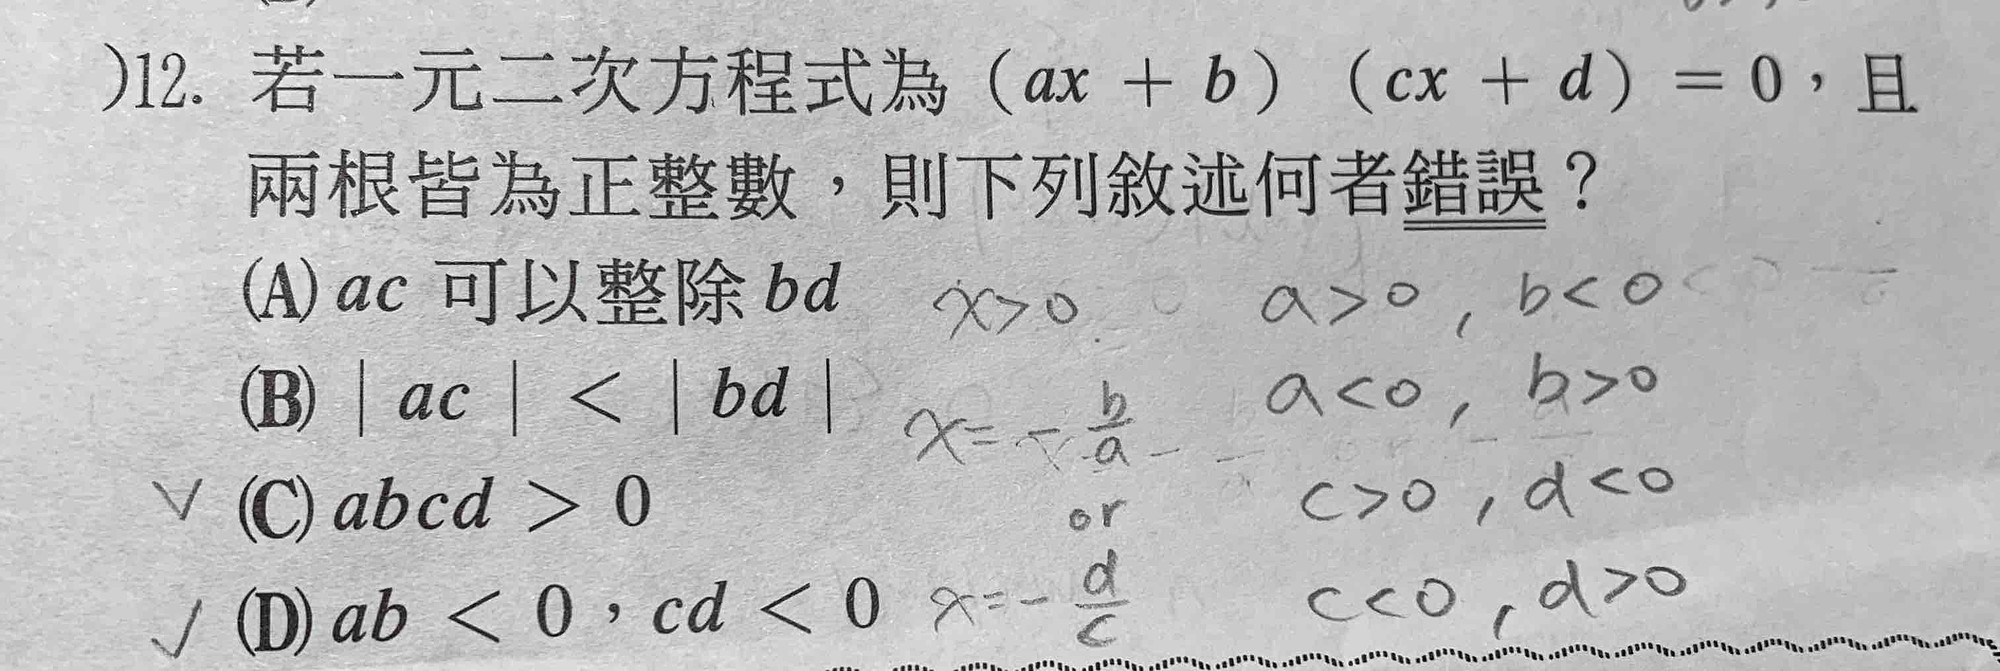 )12. 若一元二次方程式為(ax + b)(cx + d) = 0,且
兩根皆為正整數,則下列敘述何者錯誤?
(A) ac 可以整除 bd x>0 a>0, b<0
(B) | ac | < | bd | x=-b/a a<0, b>0
✓ (C) abcd > 0 or c>0, d<0
✓ (D) ab < 0,cd < 0 x=-d/c c<0, d>0